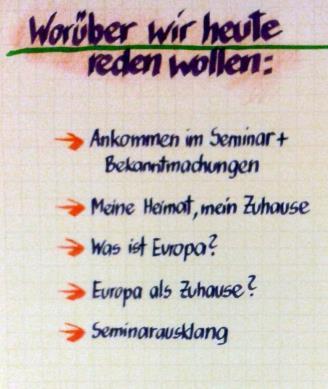 Worüber wir heute
reden wollen:
Ankommen im Seminar +
Bekanntmachungen
Meine Heimat, mein Zuhause
Was ist Europa?
Europa als Zuhause?
Seminarausklang